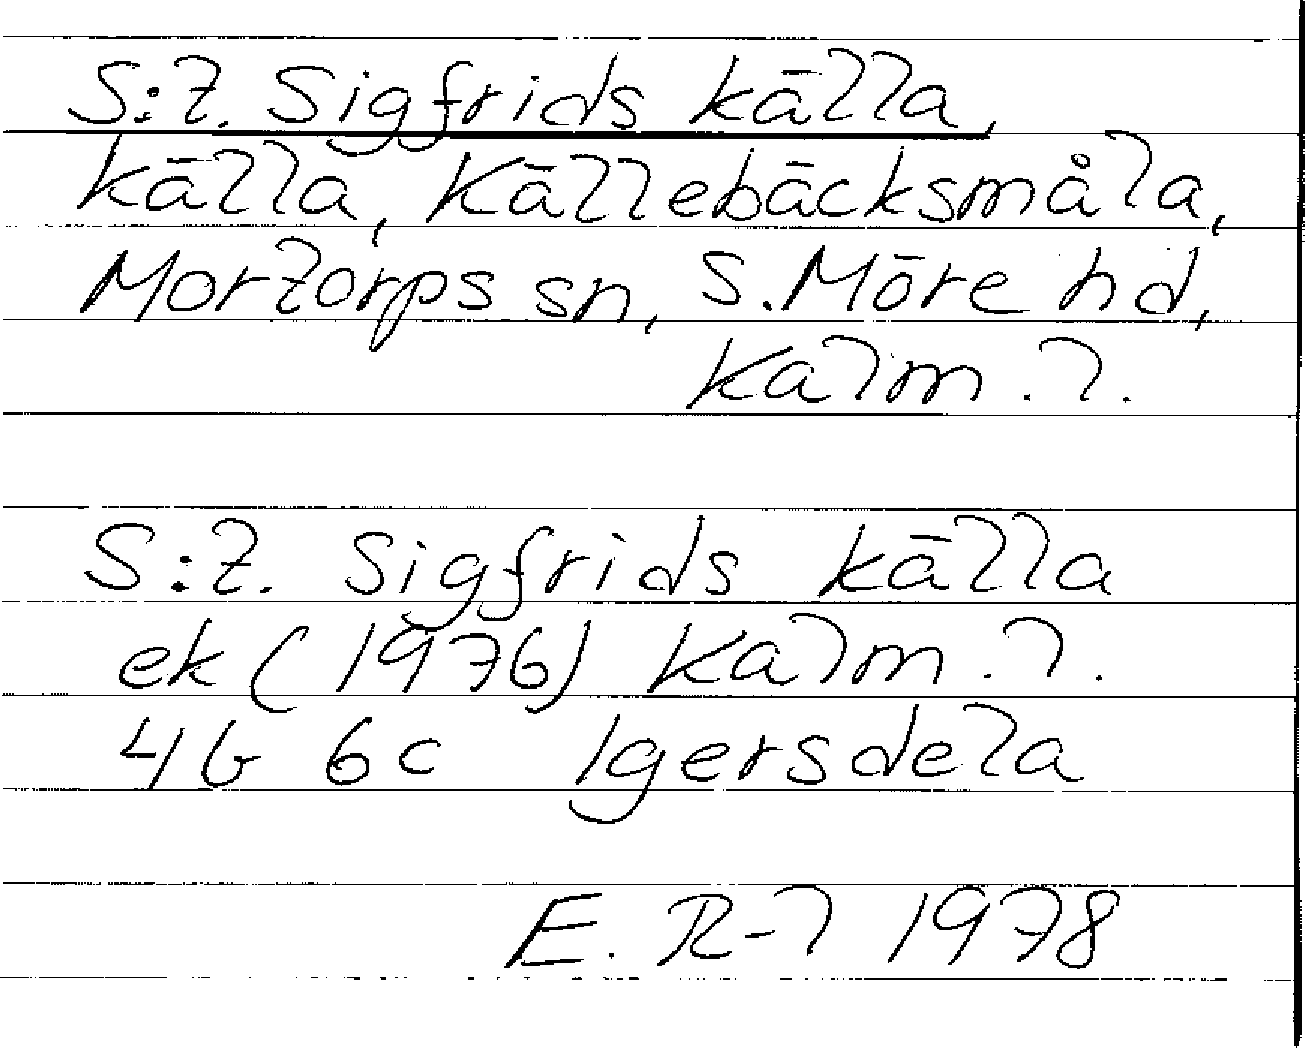 S:t. Sigfrids källa,
källa, Källebäcksmåla,
Mortorps sn, S. Möre hd,
Kalm. l.
S:t. Sigfrids källa
ek (1976) Kalm. l.
4G 6c Igersdela
E. R-l 1978